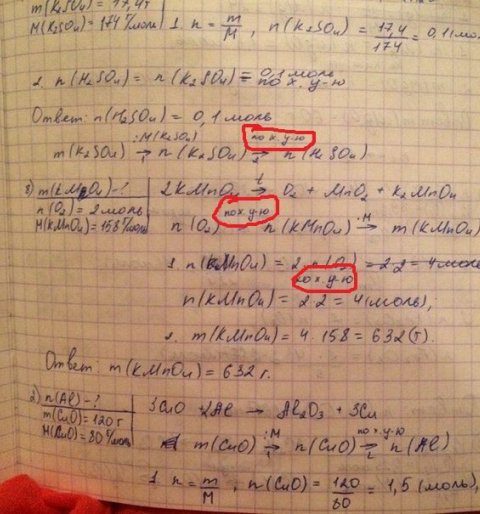 m(K₂SO₄) = 17,4г
M(K₂SO₄) = 174 г/моль
1. n = m/M, n(K₂SO₄) = 17,4/174 = 0,1(мол
2. n(H₂SO₄) = n(K₂SO₄) = 0,1 моль
по х. у-ю
Ответ: n(H₂SO₄) = 0,1 моль
m(K₂SO₄) :M(K₂SO₄) →1 n(K₂SO₄) по х. у-ю →2 n(H₂SO₄)
m(KMnO₄) - ?
n(O₂) = 2 моль
M(KMnO₄) = 158 г/моль
2KMnO₄ t→ O₂ + MnO₂ + K₂MnO₄
n(O₂) по х. у-ю → n(KMnO₄) ·M→ m(KMnO₄)
1. n(KMnO₄) = 2·n(O₂) = 2·2 = 4 моль
по х. у-ю
n(KMnO₄) = 2·2 = 4 (моль);
2. m(KMnO₄) = 4·158 = 632 (г).
Ответ: m(KMnO₄) = 632 г.
2) n(Al) - ?
m(CuO) = 120 г
M(CuO) = 80 г/моль
3CuO + 2Al → Al₂O₃ + 3Cu
m(CuO) :M →1 n(CuO) по х. у-ю →2 n(Al)
1. n = m/M, n(CuO) = 120/80 = 1,5 (моль),